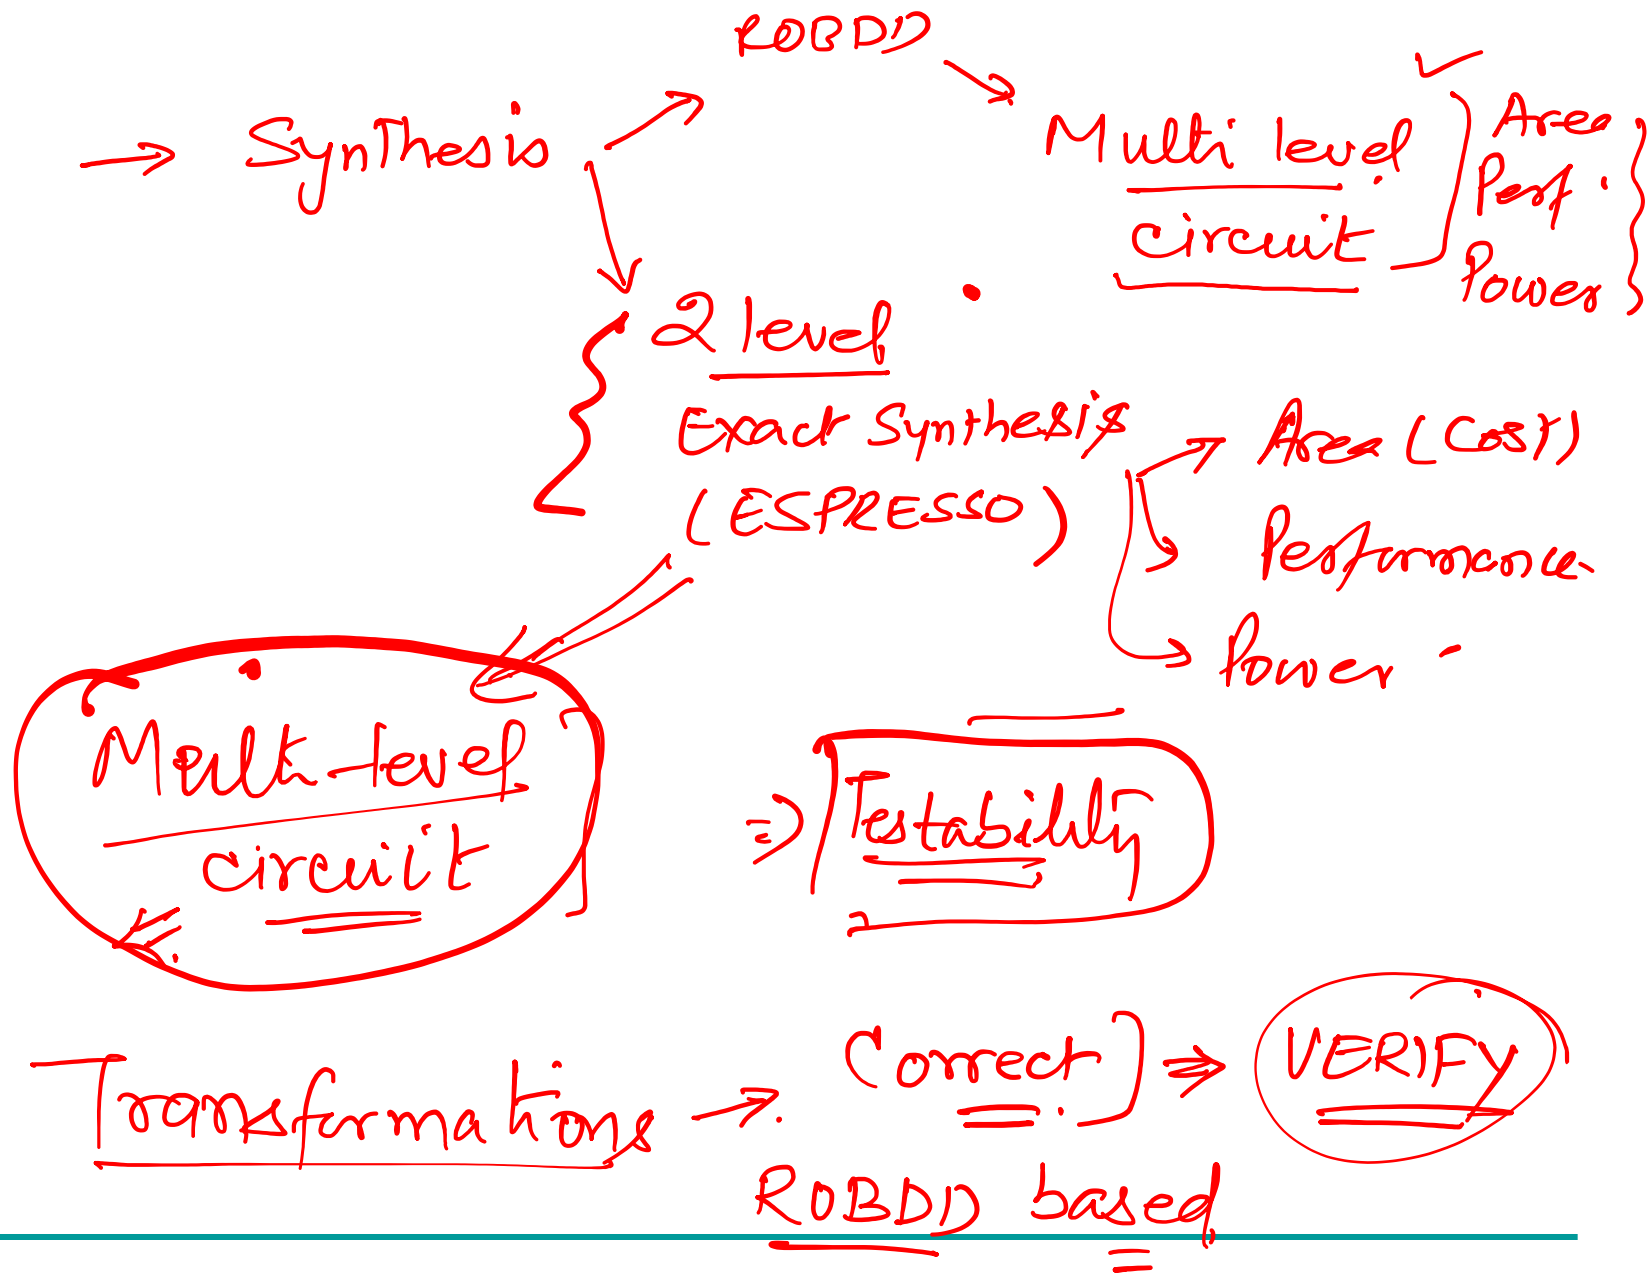 ROBDD
→ Synthesis
Multi level
circuit
Area
Perf.
Power
2 level
Exact Synthesis
(ESPRESSO)
Area (Cost)
Performance
Power
Multi-level
circuit
⇒ Testability
Transformations → Correct ⇒ VERIFY
ROBDD based